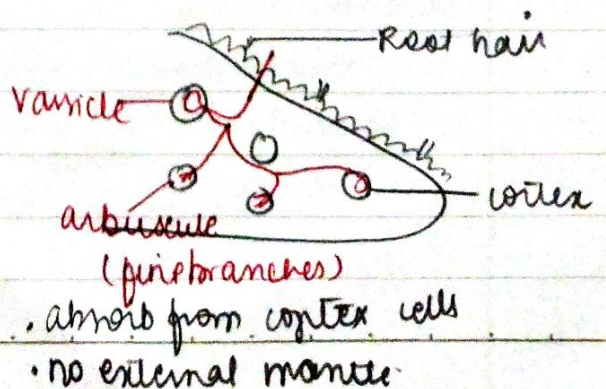 Root hair
vassicle
cortex
arbuscule
(fine branches)
. absorb from cortex cells
. no external mantle.